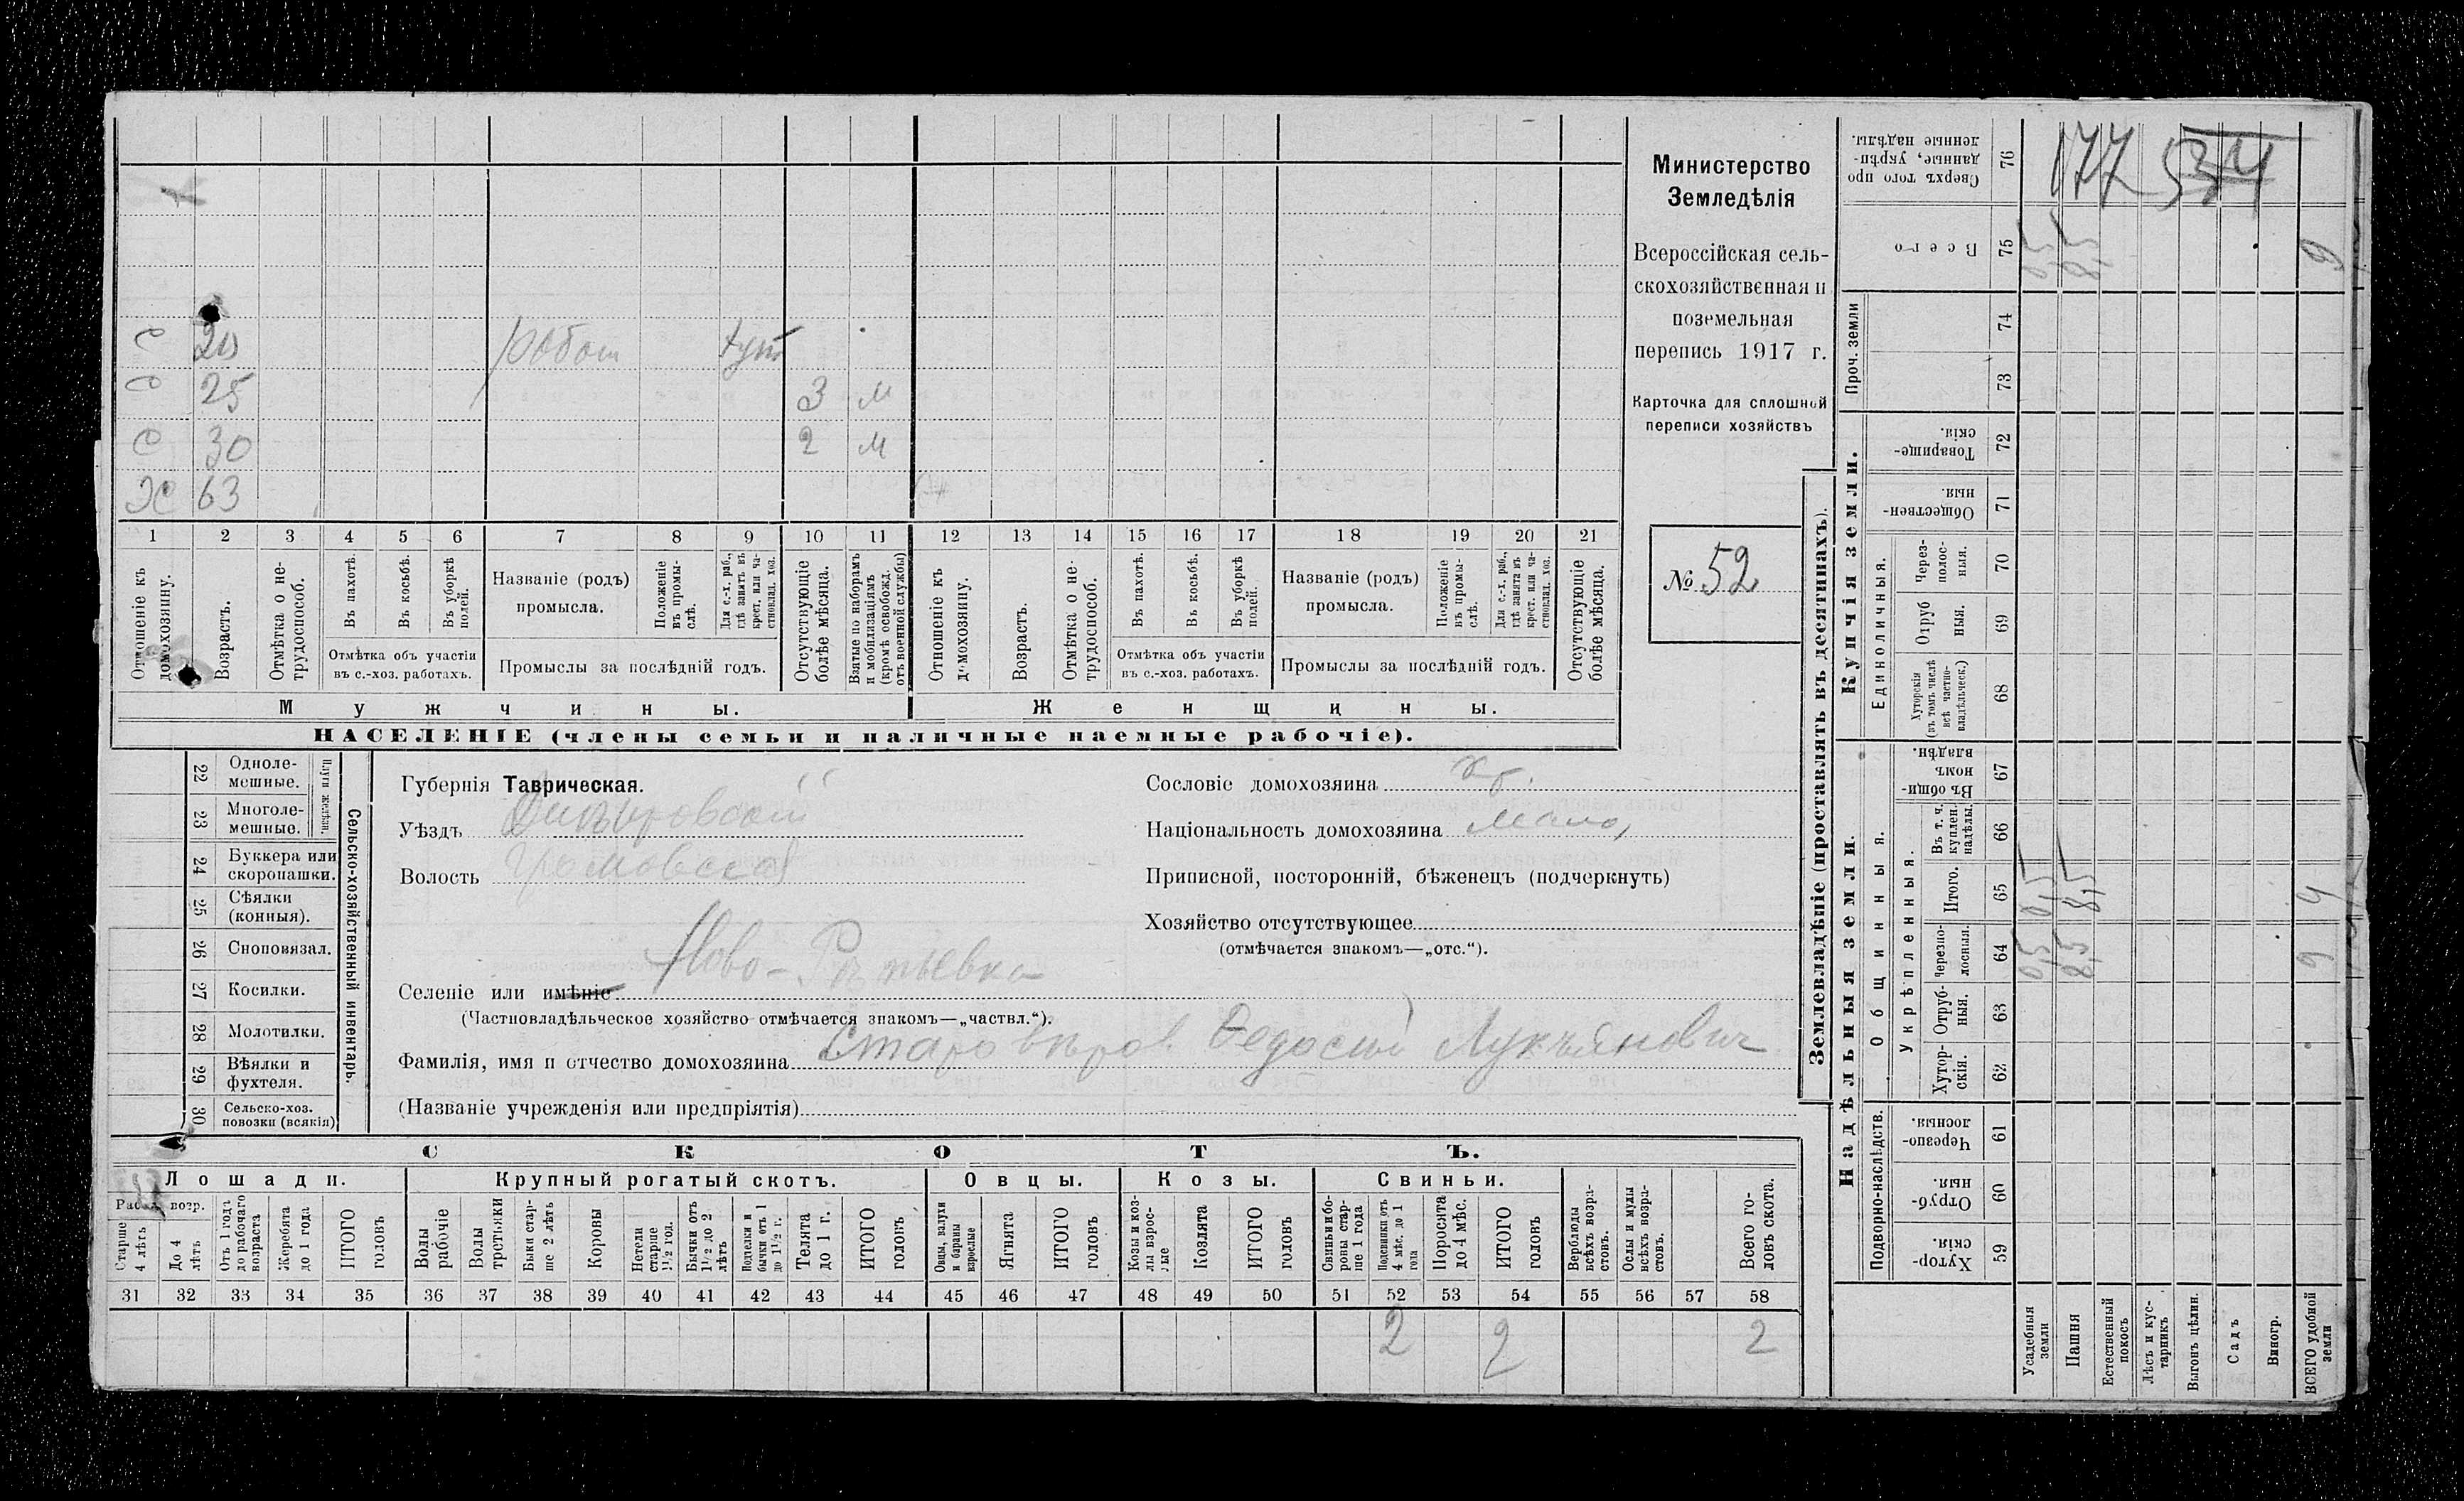 Министерство
Земледѣлія
Всероссійская сель-
скохозяйственная и
поземельная
перепись 1917 г.
Карточка для сплошной
переписи хозяйствъ
№ 52
С 20 тут
С 25 3 м
С 30 2 м
ЭС 63
1 2 3 4 5 6 7 8 9 10 11 12 13 14 15 16 17 18 19 20 21
Отношеніе къ домохозяину.
Возрастъ.
Отмѣтка о не-трудоспособ.
Въ пахотѣ.
Въ косьбѣ.
Въ уборкѣ полей.
Отмѣтка объ участіи
въ с.-хоз. работахъ.
Названіе (родъ)
промысла.
Положеніе въ промы-слѣ.
Для с.-х. раб., гдѣ занятъ въ крест. или ча-стновлад. хоз.
Промыслы за послѣдній годъ.
Отсутствующіе болѣе мѣсяца.
Взятые по наборамъ и мобилизаціямъ (кромѣ освобожд. отъ военной службы)
Отношеніе къ домохозяину.
Возрастъ.
Отмѣтка о не-трудоспособ.
Въ пахотѣ.
Въ косьбѣ.
Въ уборкѣ полей.
Отмѣтка объ участіи
въ с.-хоз. работахъ.
Названіе (родъ)
промысла.
Положеніе въ промы-слѣ.
Для с.-х. раб., гдѣ занята въ крест. или ча-стновлад. хоз.
Промыслы за послѣдній годъ.
Отсутствующіе болѣе мѣсяца.
Мужчины.
Женщины.
НАСЕЛЕНІЕ (члены семьи и наличные наемные рабочіе).
22 Одноле-мешные.
23 Многоле-мешные.
Плуги желѣзн.
24 Буккера или скоропашки.
25 Сѣялки (конныя).
26 Сноповязал.
27 Косилки.
28 Молотилки.
29 Вѣялки и фухтеля.
30 Сельско-хоз. повозки (всякія)
Сельско-хозяйственный инвентарь.
Губернія Таврическая.
Уѣздъ Днѣпровскій
Волость Громовская
Селеніе или имѣніе Ново-
(Частновладѣльческое хозяйство отмѣчается знакомъ—„частвл.“).
Фамилія, имя и отчество домохозяина Старовѣров Федосій Лукьянович
(Названіе учрежденія или предпріятія)
Сословіе домохозяина кр.
Національность домохозяина Мало,
Приписной, посторонній, бѣженецъ (подчеркнуть)
Хозяйство отсутствующее
(отмѣчается знакомъ—„отс.“).
СКОТЪ.
Лошади. Крупный рогатый скотъ. Овцы. Козы. Свиньи.
Рабоч. возр.
Старше 4 лѣтъ
До 4 лѣтъ
Отъ 1 года до рабочаго возраста
Жеребята до 1 года
ИТОГО головъ
Волы рабочіе
Волы третьяки
Быки стар-ше 2 лѣтъ
Коровы
Нетели старше 1½ год.
Бычки отъ 1½ до 2 лѣтъ
Подтелки и бычки отъ 1 до 1½ г.
Телята до 1 г.
ИТОГО головъ
Овцы, валухи и бараны взрослые
Ягнята
ИТОГО головъ
Козы и коз-лы взрос-лые
Козлята
ИТОГО головъ
Свиньи и бо-ровы стар-ше 1 года
Подсвинки отъ 4 мѣс. до 1 года
Поросята до 4 мѣс.
ИТОГО головъ
Верблюды всѣхъ возра-стовъ.
Ослы и мулы всѣхъ возра-стовъ.
Всего го-ловъ скота.
31 32 33 34 35 36 37 38 39 40 41 42 43 44 45 46 47 48 49 50 51 52 53 54 55 56 57 58
2 2 2
Землевладѣніе (проставлять въ десятинахъ).
Надѣльныя земли.
Купчія земли.
Проч. земли
Подворно-наслѣдств.
Общинныя.
Укрѣпленныя.
Единоличныя.
Сверхъ того про данные, укрѣп-ленные надѣлы. 76
Всего 75
74
73
Товарище-скія. 72
Обществен-ныя. 71
Через-полос-ныя. 70
Отруб ныя. 69
Хуторскія (въ томъ числѣ всѣ частно-владѣльческ.) 68
Въ общи-номъ владѣн. 67
Въ т. ч. куплен. надѣлы. 66
Итого. 65
Черезпо-лосныя. 64
Отруб-ныя. 63
Хутор-скія. 62
Черезпо-лосныя. 61
Отруб-ныя. 60
Хутор-скія. 59
177 534
0,5 8,5 9
0,5 8,5 9
0,5 8,5 9
Усадебныя земли
Пашня
Естественный покосъ
Лѣсъ и кус-тарникъ
Выгонъ цѣлин.
Садъ
Виногр.
ВСЕГО удобной земли